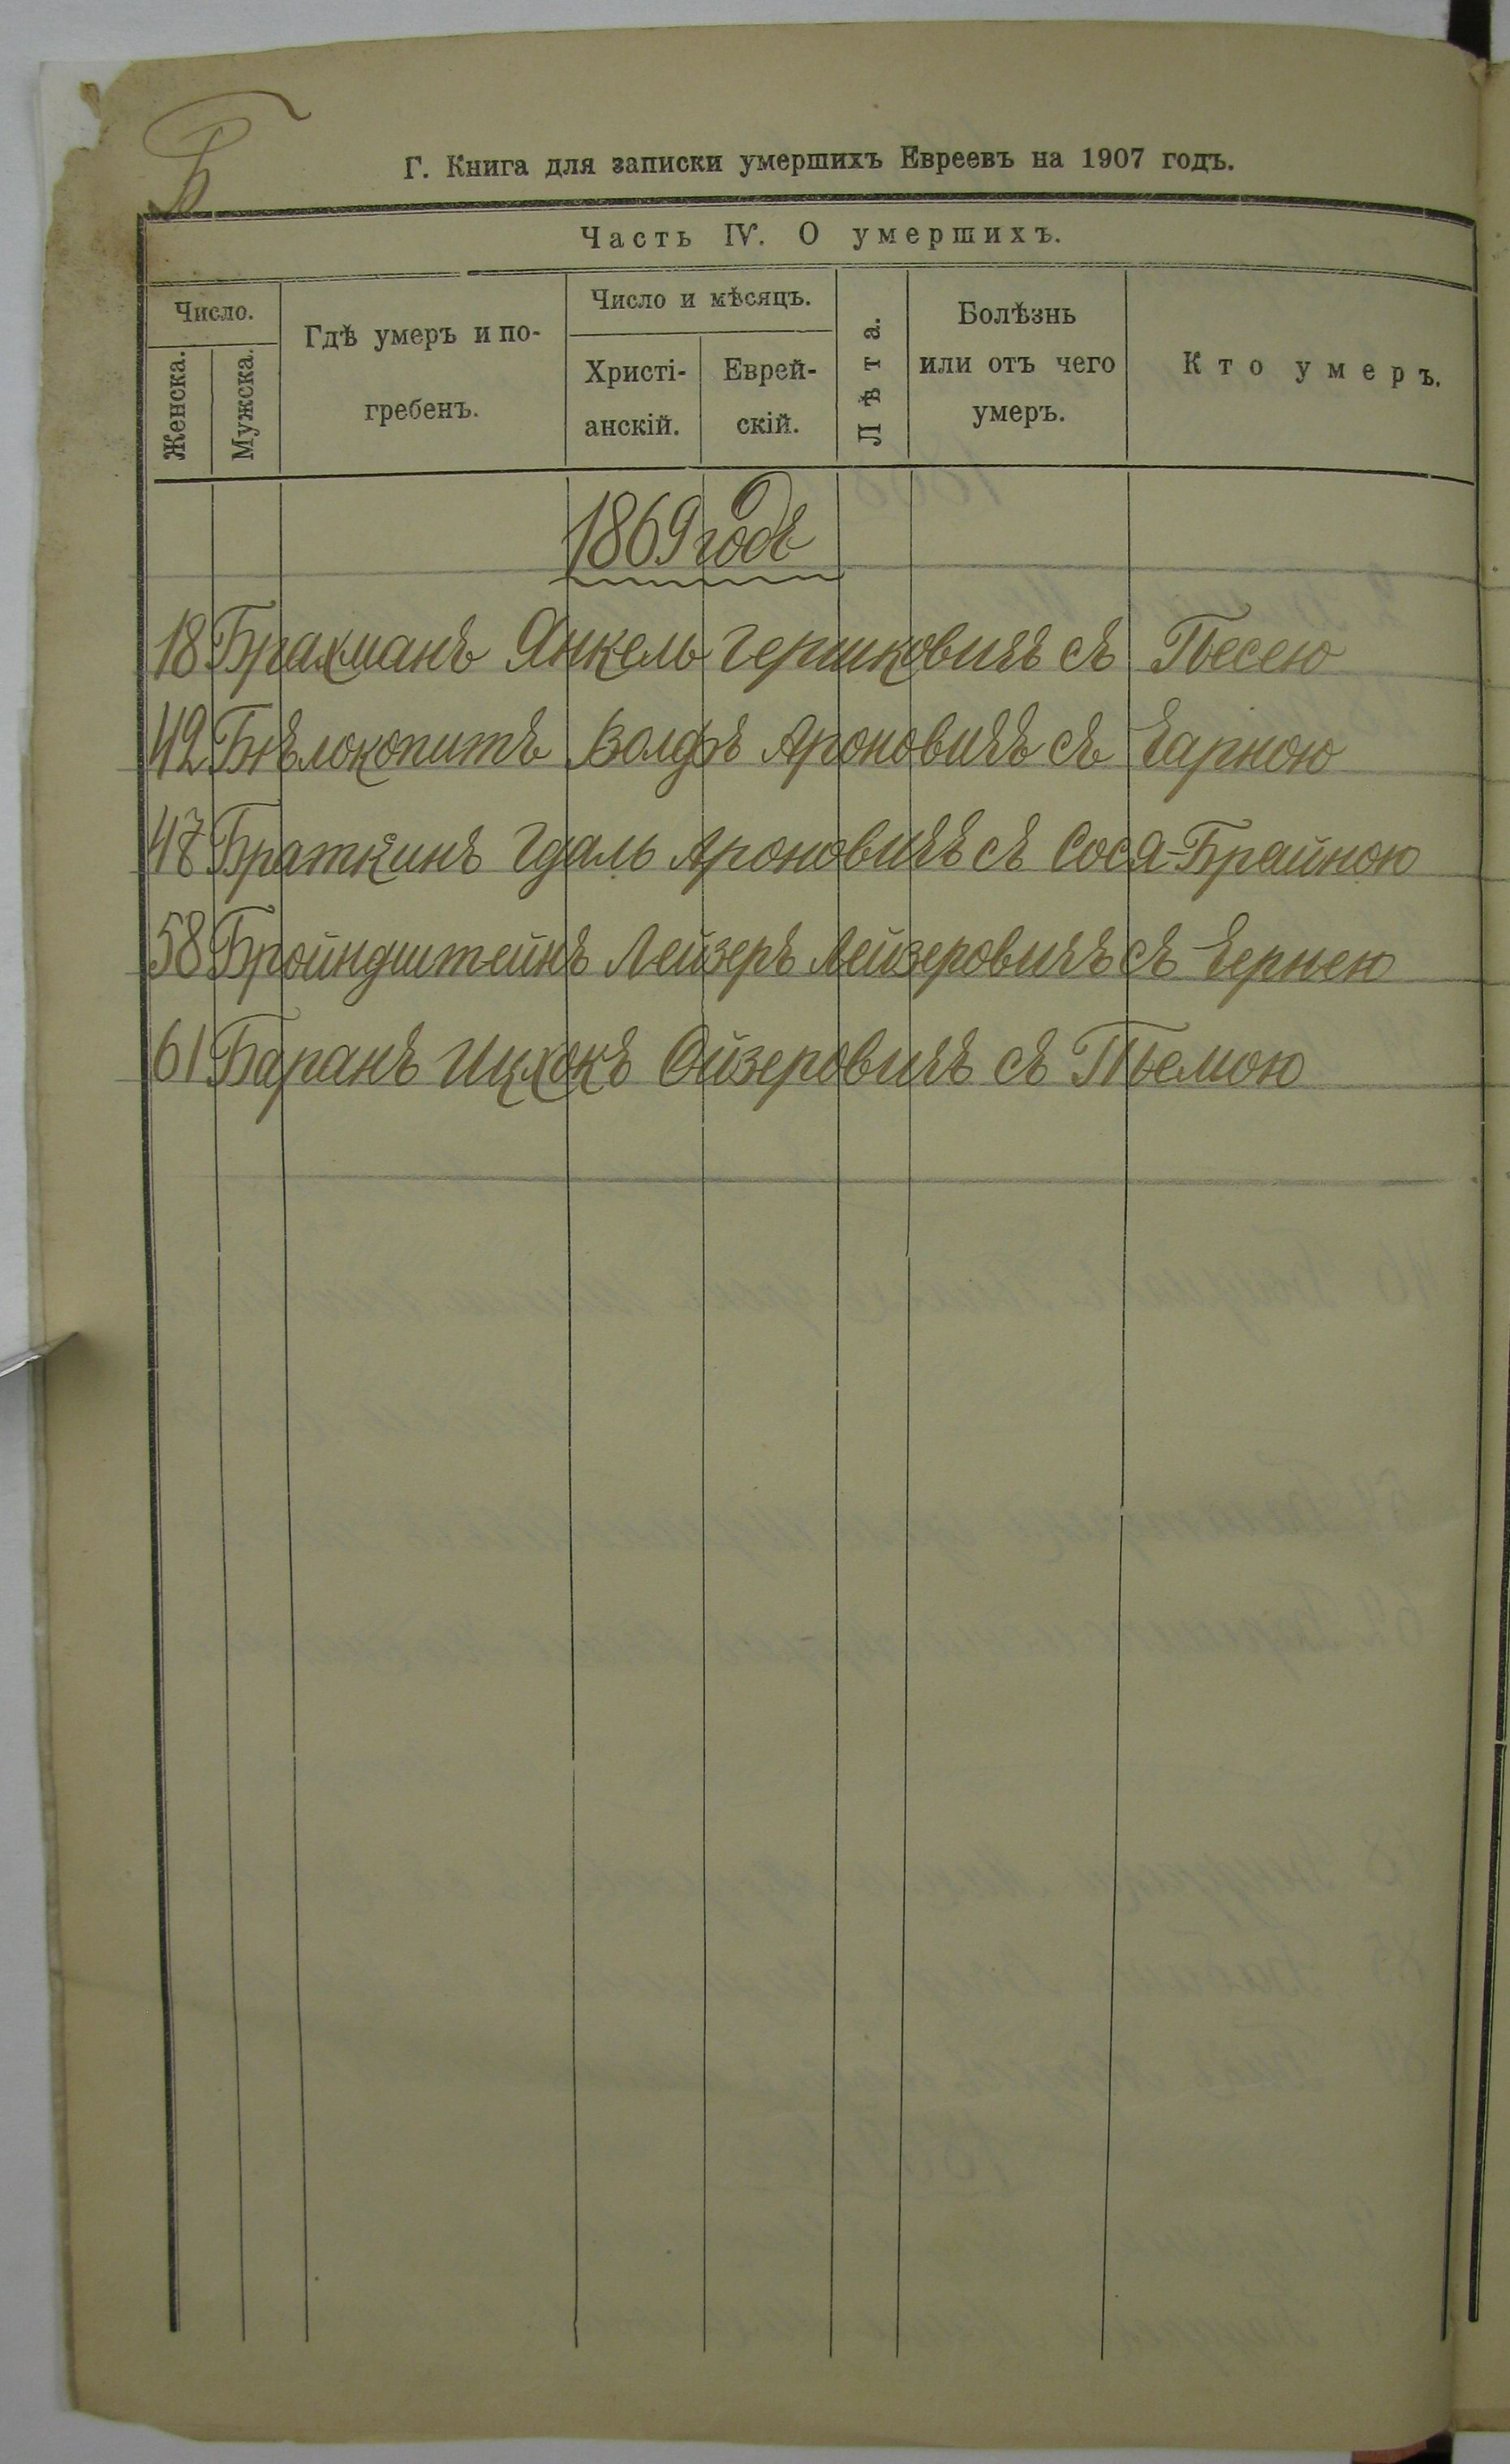 Б
Г. Книга для записки умершихъ Евреевъ на 1907 годъ.
Часть IV. О умершихъ.
Число.
Женска.
Мужска.
Гдѣ умеръ и по-
гребенъ.
Число и мѣсяцъ.
Христі-
анскій.
Еврей-
скій.
Лѣта.
Болѣзнь
или отъ чего
умеръ.
Кто умеръ.
1869 годъ
18 Брахманъ Янкель Гершковичъ съ Песею
42 Бѣлокопитъ Волфъ Ароновичъ съ Чарною
47 Браткинъ Гдаль Ароновичъ съ Сося-Брайною
58 Бройндштейнъ Лейзеръ Лейзеровичъ съ Чернею
61 Баранъ Ицхокъ Ойзеровичъ съ